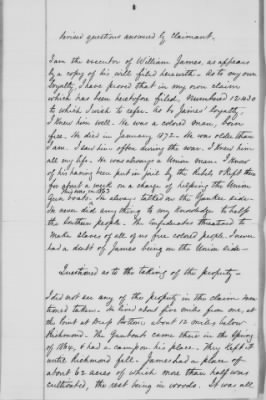 revised questions answered by claimant.
I am the executor of William James, as appears
by a copy of his will filed herewith. As to my own
loyalty, I have proved that in my own claim
which has been heretofore filed, Numbered 12430
to which I wish to refer. As to James' loyalty,
I knew him well. He was a colored man, born
free. He died in January 1872. He was older than
I am. I saw him often during the war. I knew him
all my life. He was always a Union man. I know
of his having been put in jail by the Rebels & kept there
for about a week on a charge of helping the Union
Gun boats. This was in 1862 He always talked on the Yankee side
He never did any thing to my knowledge to help
the Southern people. The confederates threatened to
make slaves of all of us free colored people. I never
had a doubt of James being on the Union side
Questioned as to the taking of the property
I did not see any of the property in the claim men-
tioned taken. He lived about five miles from me, at
the Court at Deep Bottom, about 15 miles below
Richmond. The Gunboats came there in the Spring
of 1864, & had a camp on his place. They kept it
until Richmond fell. James had a place of
about 62 acres of which more than half was
cultivated, the rest being in woods. It was all